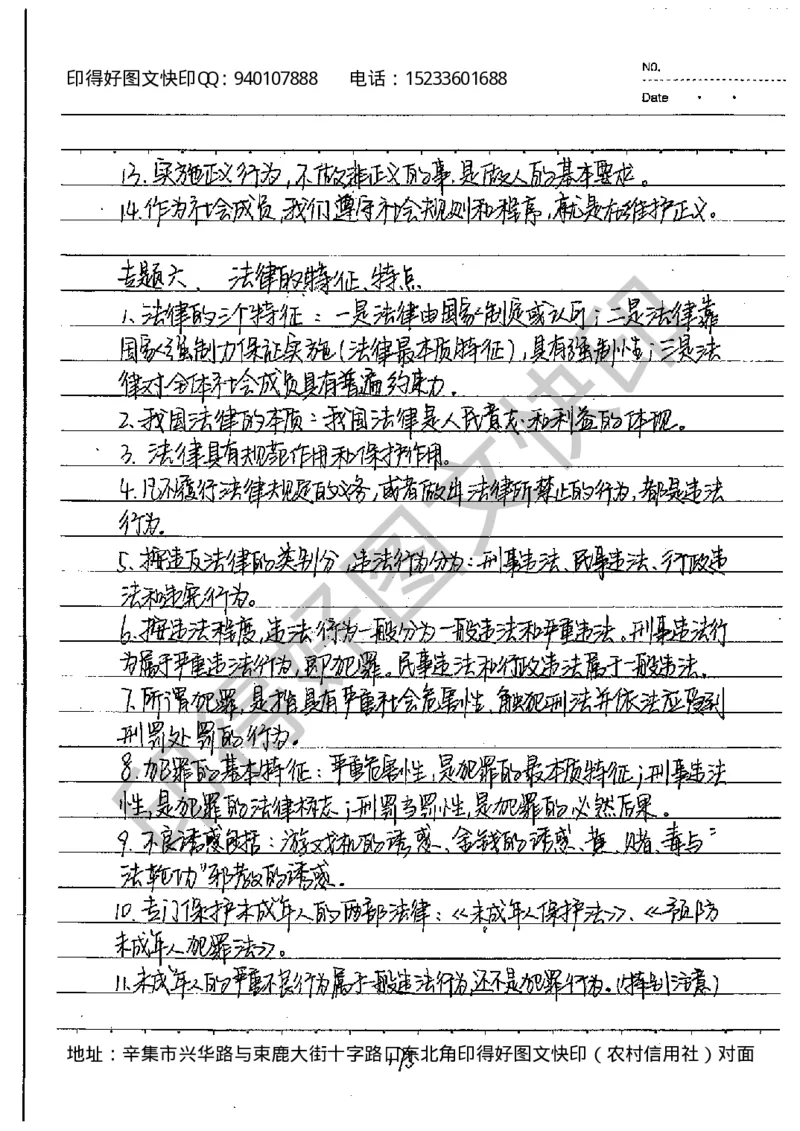 NO.
印得好图文快印QQ：940107888 电话：15233601688
Date
13.实施正义行为，不做非正义的事，是做人的基本要求。
14.作为社会成员，我们遵守社会规则和程序，就是在维护正义。
专题六、法律的特征、特点
1、法律的三个特征：一是法律由国家制定或认可；二是法律靠
国家强制力保证实施（法律最本质特征），具有强制性；三是法
律对全体社会成员具有普遍约束力．
2、我国法律的本质：我国法律是人民意志和利益的体现。
3．法律具有规范作用和保护作用。
4．凡不履行法律规定的义务，或者做出法律所禁止的行为，都是违法
行为．
5．按违反法律的类别分，违法行为分为：刑事违法、民事违法、行政违
法和违宪行为。
6．按违法程度，违法行为一般分为一般违法和严重违法。刑事违法行
为属于严重违法行为，即犯罪。民事违法和行政违法属于一般违法．
7．所谓犯罪，是指具有严重社会危害性、触犯刑法并依法应受到
刑罚处罚的行为。
8．犯罪的基本特征：严重危害性，是犯罪的最本质特征；刑事违法
性，是犯罪的法律标志；刑罚当罚性，是犯罪的必然后果。
9．不良诱惑包括：游戏机的诱惑、金钱的诱惑、黄、赌、毒与“
法轮功”邪教的诱惑．
10．专门保护未成年人的两部法律：《未成年人保护法》、《预防
未成年人犯罪法》。
11．未成年人的严重不良行为属于一般违法行为，还不是犯罪行为。（特别注意）
地址：辛集市兴华路与束鹿大街十字路口东北角印得好图文快印（农村信用社）对面
印得好图文快印